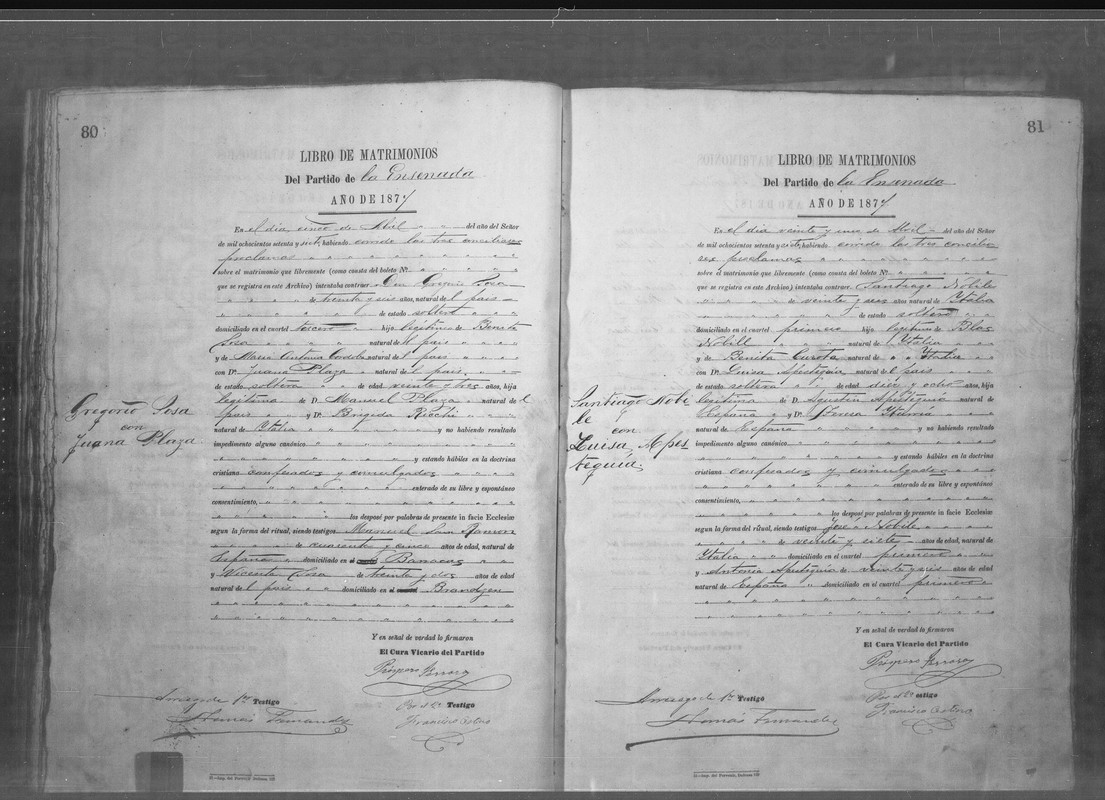 80
LIBRO DE MATRIMONIOS
Del Partido de la Ensenada
AÑO DE 1877
En el dia cinco de Abril del año del Señor
de mil ochocientos setenta y siete, habiendo corrido las tres conciliares
proclamas
sobre el matrimonio que libremente (como consta del boleto Nº.
que se registra en este Archivo) intentaba contraer Don Gregorio Sosa
de treinta y seis años, natural del pais
de estado soltero
domiciliado en el cuartel tercero hijo legítimo de Benito
Sosa natural del pais
y de Maria Antonia Cordoba natural del pais
con Dª. Juana Plaza natural del pais
de estado soltera de edad veinte y tres años, hija
legítima de D. Manuel Plaza natural del
pais y Dª. Brigida
natural de Italia y no habiendo resultado
impedimento alguno canónico
y estando hábiles en la doctrina
cristiana confesados y comulgados
enterado de su libre y espontáneo
consentimiento,
los desposé por palabras de presente in facie Ecclesiæ
segun la forma del ritual, siendo testigos Manuel San Roman
de cuarenta y cinco años de edad, natural de
España domiciliado en Barracas
y Vicenta Sosa de treinta y dos años de edad
natural del pais domiciliado en Brandzen
Y en señal de verdad lo firmaron
El Cura Vicario del Partido
Próspero
Arruego de 1er Testigo
Tomás Fernandez
Por 2º Testigo
Francisco
Gregorio Sosa
con
Juana Plaza
81
LIBRO DE MATRIMONIOS
Del Partido de la Ensenada
AÑO DE 1877
En el dia veinte y uno de Abril del año del Señor
de mil ochocientos setenta y siete, habiendo corrido las tres concilia
res proclamas
sobre el matrimonio que libremente (como consta del boleto Nº.
que se registra en este Archivo) intentaba contraer Santiago Nobile
de veinte y seis años natural de Italia
de estado soltero
domiciliado en el cuartel primero hijo legítimo de Blas
Nobili natural de Italia
y de Benita natural de Italia
con Dª. Luisa Apesteguia natural del pais
de estado soltera de edad diez y ocho años, hija
legítima de D. Agustin Apesteguia natural de
España y Dª.
natural de España y no habiendo resultado
impedimento alguno canónico
y estando hábiles en la doctrina
cristiana confesados y comulgados
enterado de su libre y espontáneo
consentimiento,
los desposé por palabras de presente in facie Ecclesiæ
segun la forma del ritual, siendo testigos José Nobile
de veinte y siete años de edad, natural de
Italia domiciliado en el cuartel primero
y Antonia Apesteguia de veinte y seis años de edad
natural de España domiciliado en el cuartel primero
Y en señal de verdad lo firmaron
El Cura Vicario del Partido
Próspero
Arruego de 1er Testigo
Tomás Fernandez
Por 2º Testigo
Francisco
Santiago Nobi
le
con
Luisa Apes
teguia